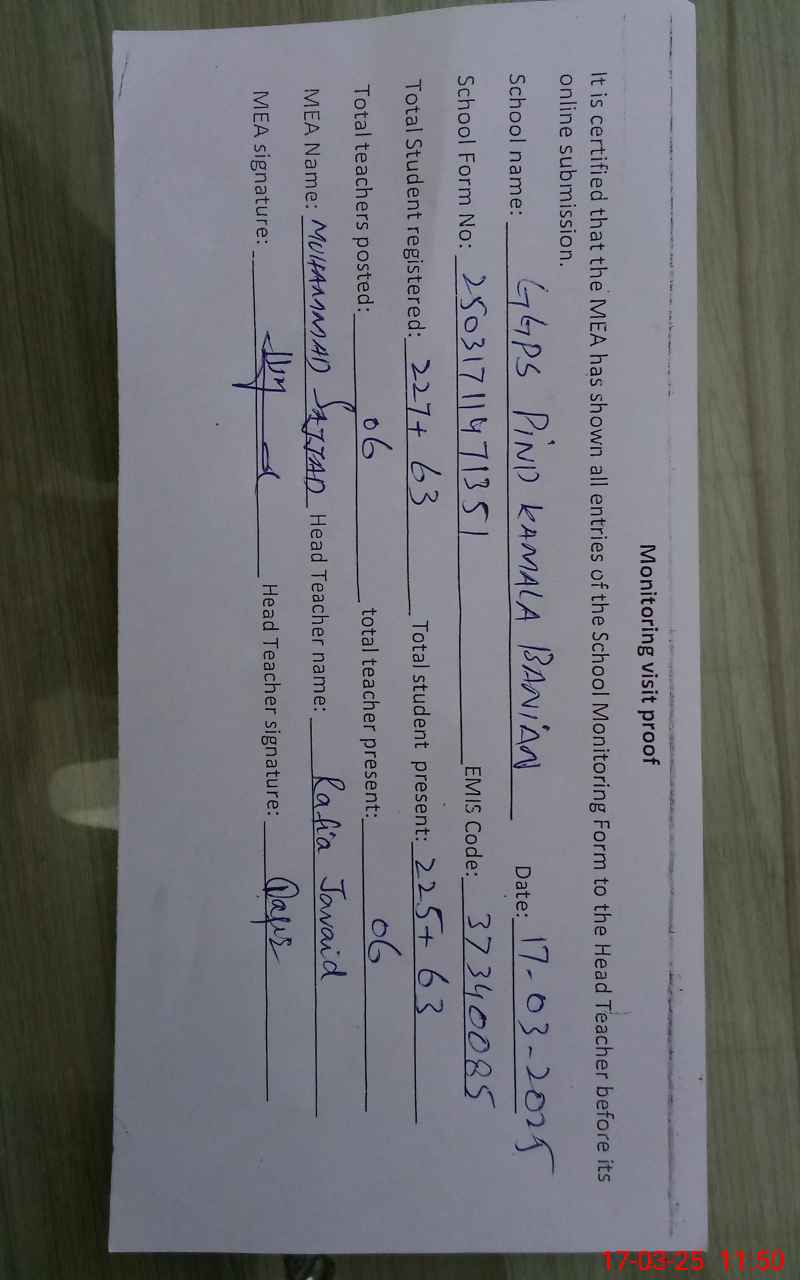 Monitoring visit proof
It is certified that the MEA has shown all entries of the School Monitoring Form to the Head Teacher before its
online submission.
School name: GGPS PIND KAMALA BANIAN Date: 17-03-2025
School Form No: 25031711471351 EMIS Code: 37340085
Total Student registered: 227+ 63 Total student present: 225+ 63
Total teachers posted: 06 total teacher present: 06
MEA Name: MUHAMMAD SAJJAD Head Teacher name: Rafia Javaid
MEA signature: Head Teacher signature:
17-03-25 11:50